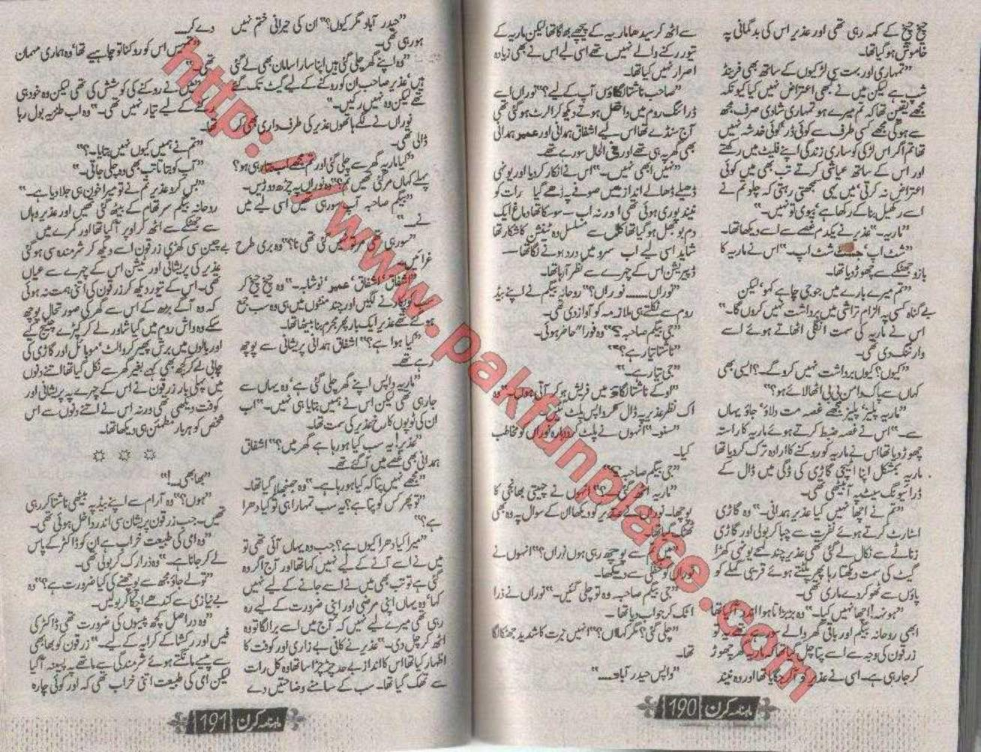 چیخ چیخ کے کہہ رہی تھی اور عذیر اس کی بدگمانی پہ
خاموش ہو گیا تھا۔
"تمہاری اور بہت سی لڑکیوں کے ساتھ بھی فرینڈ
شپ ہے لیکن میں نے کبھی اعتراض نہیں کیا کیونکہ
مجھے یقین تھا کہ تم میرے ہو تمہاری شادی صرف مجھ
سے ہوگی مجھے کسی طرف سے کوئی ڈر کوئی خدشہ نہیں
تھا تم اگر اس لڑکی کو ساری زندگی اپنے فلیٹ میں رکھتے
اور اس کے ساتھ عیاشی کرتے تب بھی میں کوئی
اعتراض نہ کرتی میں یہی سمجھتی رہتی کہ چلو تم نے
اسے رکھیل بنا کے رکھا ہے بیوی تو نہیں۔"
"ماریہ۔" عذیر نے یکدم غصے سے اسے دیکھا۔
"شٹ اپ جسٹ شٹ اپ۔" اس نے ماریہ کا
بازو جھٹکے سے چھوڑ دیا تھا۔
"تم میرے بارے میں جو جی چاہے کہو لیکن
بے گناہ کسی پہ الزام تراشی میں برداشت نہیں کروں گا۔"
اس نے ماریہ کی سمت انگلی اٹھاتے ہوئے اسے
وارننگ دی تھی۔
"کیوں؟ کیوں برداشت نہیں کرو گے؟ ایسی بھی
کہاں سے پاک دامن بی بی اٹھا لائے ہو؟"
"ماریہ پلیز! پلیز مجھے غصہ مت دلاؤ' جاؤ یہاں
سے۔" اس نے غصہ ضبط کرتے ہوئے ماریہ کا راستہ
چھوڑ دیا تھا اس نے ماریہ کو روکنے کا ارادہ ترک کر دیا تھا
ماریہ بمشکل اپنا اٹیچی گاڑی کی ڈگی میں ڈال کے
ڈرائیونگ سیٹ پہ آ بیٹھی تھی۔
"تم نے اچھا نہیں کیا عذیر ہمدانی۔" وہ گاڑی
اسٹارٹ کرتے ہوئے نفرت سے چبا کر بولی اور گاڑی
زناٹے سے نکال لے گئی تھی عذیر چند لمحے یونہی کھڑا
گیٹ کی سمت دیکھتا رہا پھر پلٹتے ہوئے قریبی گملے کو
پاؤں سے ٹھوکر دے ماری تھی۔
"ہونہہ! اچھا نہیں کیا۔" وہ بڑبڑاتا ہوا اندر آ گیا تھا
ابھی روحانہ بیگم اور باقی گھر والے
زرتون کی وجہ سے اسے پتا چل گھر چھوڑ
کر جا رہی ہے۔ اسی نے عذیر کو آ کر اور وہ نیند
سے اٹھ کر سیدھا ماریہ کے پیچھے بھاگا تھا لیکن ماریہ کے
تیور رکنے والے نہیں تھے اسی لیے اس نے بھی زیادہ
اصرار نہیں کیا تھا۔
"صاحب ناشتا لگاؤں آپ کے لیے؟" نوراں اسے
ڈرائنگ روم میں داخل ہوتے دیکھ کر الرٹ ہو گئی تھی
آج سنڈے تھا اس لیے اشفاق ہمدانی اور عمیر ہمدانی
بھی گھر پہ ہی تھے اور فی الحال سو رہے تھے۔
"نہیں ابھی نہیں۔" اس نے انکار کر دیا اور یونہی
ڈھیلے ڈھالے انداز میں صوفے پہ ڈھے گیا رات کو
نیند پوری ہوئی تھی اور نہ اب - سو سکا تھا دماغ ایک
دم بوجھل ہو گیا تھا کل سے مسلسل وہ ٹینشن کا شکار تھا
شاید اسی لیے اب سر میں درد ہونے لگا تھا۔
ڈپریشن اس کے چہرے سے نظر آ رہا تھا۔
"نوراں...... نوراں؟" روحانہ بیگم نے اپنے بیڈ
روم سے نکلتے ہی ملازمہ کو آواز دی تھی۔
"جی بیگم صاحبہ؟" وہ فوراً حاضر ہوئی۔
"ناشتا تیار ہے؟"
"جی تیار ہے۔"
"اوکے ناشتا لگاؤ میں فریش ہو کے آتی ہوں۔" وہ
اک نظر عذیر پہ ڈال کر واپس پلٹ
"سنو۔" انہوں نے پلٹ کر دوبارہ نوراں کو مخاطب
کیا۔
"جی بیگم صاحبہ جی؟"
"ماریہ انہوں نے چہیتی بھانجی کا
پوچھا۔ نوراں نے عذیر کو دیکھا ان کے سوال پہ وہ بھی
سے پوچھ رہی ہوں نوراں؟" انہوں نے
نوراں کو سے دیکھا۔
"جی بیگم صاحبہ وہ تو چلی گئیں۔" نوراں نے ذرا
اٹک کر جواب دیا تھا۔
"چلی گئی؟ مگر کہاں؟" انہیں حیرت کا شدید جھٹکا لگا
تھا۔
"واپس حیدر آباد۔۔۔"
ماہنامہ کرن 190
"حیدر آباد مگر کیوں؟" ان کی حیرانی ختم نہیں
ہو رہی تھی۔
"وہ اپنے گھر چلی گئی ہیں اپنا سارا سامان بھی لے گئی
ہیں' عذیر صاحب ان کو روکنے کے لیے گیٹ تک گئے
تھے لیکن وہ نہیں رکیں۔"
نوراں نے لگے ہاتھوں عذیر کی طرف داری بھی کر
ڈالی تھی۔
"کیا ماریہ گھر سے چلی گئی اور تم مجھے اب بتا رہی ہو؟
پہلے کہاں مر گئی تھیں تم؟" وہ نوراں پہ چڑھ دوڑیں۔
"بیگم صاحبہ آپ سو رہی تھیں اسی لیے میں
نے۔"
"سو رہی تھی مر تو نہیں گئی تھی نا؟" وہ بری طرح
غرائیں
"اشفاق' اشفاق' عمیر' نوشابہ۔" وہ چیخ چیخ کر
لگیں اور چند منٹوں میں ہی وہ سب جمع
تھے عذیر ایک بار پھر مجرم بنا بیٹھا تھا۔
"کیا ہوا ہے؟" اشفاق ہمدانی پریشانی سے پوچھ
رہے تھے
"ماریہ واپس اپنے گھر چلی گئی ہے وہ یہاں سے
جا رہی تھی لیکن اس نے ہمیں بتایا ہی نہیں۔" اب
ان کی توپوں کا رخ عذیر کی سمت تھا۔
"عذیر! یہ سب کیا ہو رہا ہے گھر میں؟" اشفاق
ہمدانی بھی غصے میں آ گئے تھے۔
"مجھے نہیں پتا کہ کیا ہو رہا ہے۔" وہ جھنجلا گیا تھا۔
"تو پھر کس کو پتا ہے؟ یہ سب تمہارا ہی تو کیا دھرا
ہے؟"
"میرا کیا دھرا کیوں ہے؟ جب وہ یہاں آئی تھی تو
میں نے اسے آنے کے لیے نہیں کہا تھا اور آج اگر وہ
گئی ہے تو تب بھی میں نے اسے جانے کے لیے نہیں
کہا' وہ یہاں اپنی مرضی اور اپنی ضرورت کے لیے رہ
رہی تھی میرے لیے نہیں کہ آج میں اسے برا لگا تو وہ
اٹھ کر چل دی۔" عذیر نے کافی بے زاری اور کوفت کا
اظہار کیا تھا اس کا انداز بے حد چڑچڑا سا تھا وہ کل رات
سے تھک گیا تھا۔ سب کے سامنے وضاحتیں دے
دے کر
تمہیں اس کو روکنا تو چاہیے تھا' وہ ہماری مہمان
تھی۔"
"میں نے روکنے کی کوشش کی تھی لیکن وہ خود ہی
رکنے کے لیے تیار نہیں تھی۔" وہ اب طنزیہ بول رہا
تھا۔
"تم نے ہمیں کیوں نہیں بتایا۔؟"
"آپ کو بتاتا تب بھی وہ چلی جاتی۔"
"بس کرو عذیر تم نے تو میرا خون ہی جلا دیا ہے۔"
روحانہ بیگم سر تھام کے بیٹھ گئی تھیں اور عذیر وہاں
سے جھٹکے سے اٹھ کر اوپر آ گیا تھا اور کمرے میں
بے چین سی کھڑی زرتون اسے دیکھ کر شرمندہ سی ہو گئی
عذیر کی پریشانی اور ٹینشن اس کے چہرے سے عیاں
تھی۔ اس کے تیور دیکھ کر زرتون کی اتنی ہمت نہ ہوئی
کہ وہ آگے بڑھ کے اس سے گھر کی صورتحال پوچھ
سکے وہ واش روم میں گیا شاور لے کر کپڑے چینج کیے
اور بالوں میں برش پھیر کر والٹ' موبائل اور گاڑی کی
چابی لے کر کچھ بھی کہے بغیر گھر سے نکل گیا تھا اتنے دنوں
میں پہلی بار زرتون نے اس کے چہرے پہ پریشانی اور
کوفت دیکھی تھی ورنہ اس نے اتنے دنوں سے اس
شخص کو ہر بار مطمئن ہی دیکھا تھا۔
☼ ☼ ☼
"بھابھی۔!"
"ہوں؟" وہ آرام سے اپنے بیڈ پہ بیٹھی ناشتا کر رہی
تھیں۔ جب زرتون پریشان سی اندر داخل ہوئی تھی۔
"وہ امی کی طبیعت خراب ہے ان کو ڈاکٹر کے پاس
لے کر جانا ہے۔" وہ ذرا رک کر بولی تھی۔
"تو لے جاؤ مجھ سے پوچھنے کی کیا ضرورت ہے؟" وہ
بے نیازی سے کندھے اچکا کر بولیں۔
"وہ دراصل کچھ پیسوں کی ضرورت تھی ڈاکٹر کی
فیس اور رکشا کے کرایہ کے لیے۔" زرتون کو بھابھی
سے پیسے مانگتے ہوئے شرمندگی سے ماتھے پہ پسینہ آ گیا
لیکن امی کی طبیعت اتنی خراب تھی کہ اور کوئی چارہ
ماہنامہ کرن 191
http://www.pakfunplace.com